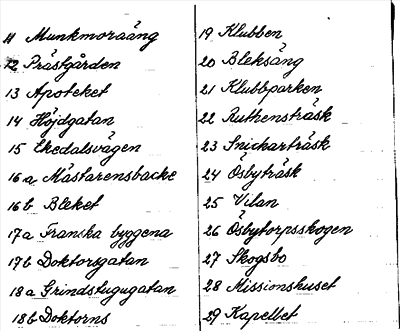 11 Munkmoraäng
12 Prästgården
13 Apoteket
14 Höjdgatan
15 Ekedalsvägen
16 a Mästarensbacke
16 b Bleket
17 a Franska byggena
17 b Doktorsgatan
18 a Grindstugugatan
18 b Doktorns
19 Klubben
20 Bleksäng
21 Klubbparken
22 Ruthensträsk
23 Snickarträsk
24 Ösbyträsk
25 Vilan
26 Ösbytorpsskogen
27 Skogsbo
28 Missionshuset
29 Kapellet